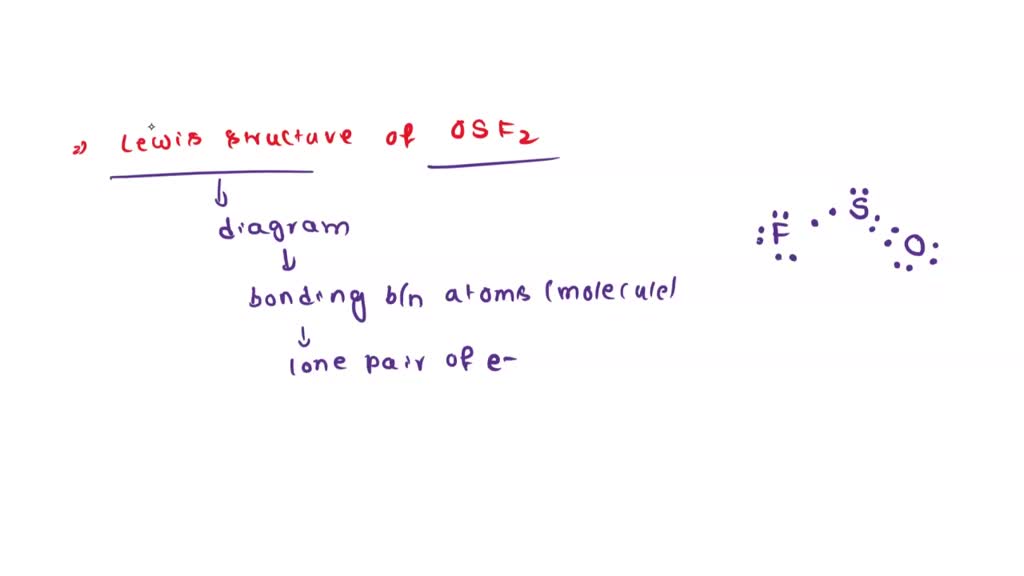 2) Lewis structure of OSF2
diagram
bonding b/n atoms (molecule)
lone pair of e-
S
F
O